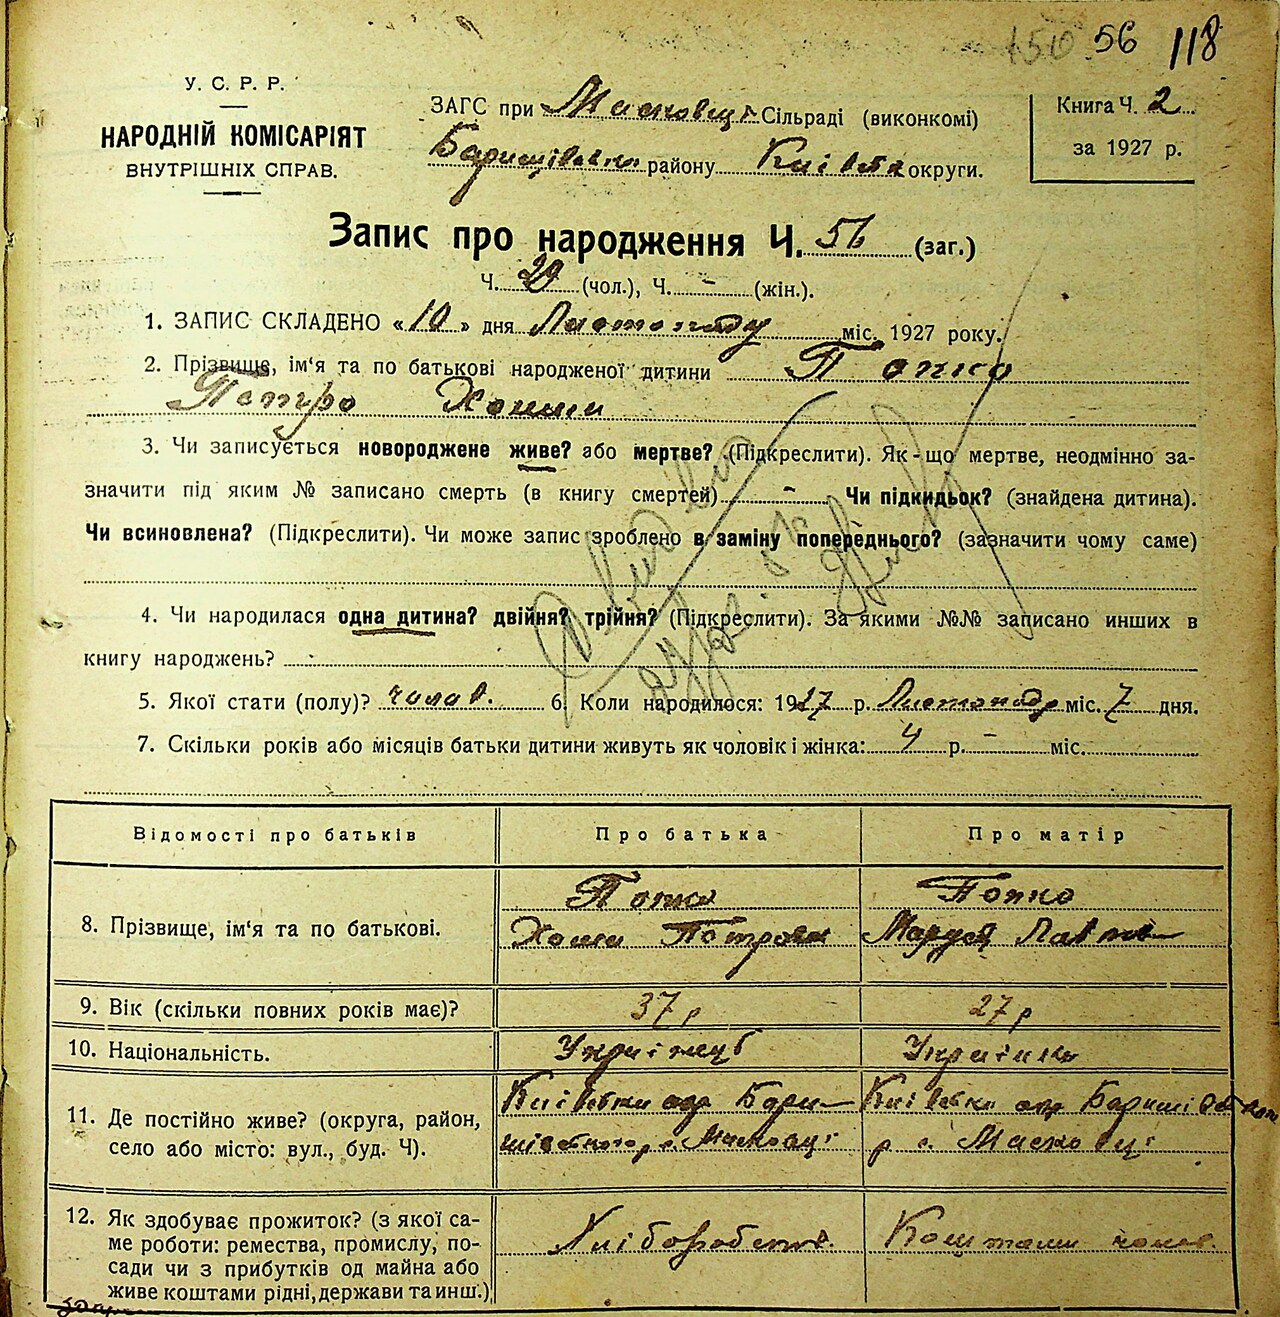 150 56 118
У. С. Р. Р.
НАРОДНІЙ КОМІСАРІЯТ
ВНУТРІШНІХ СПРАВ.
ЗАГС при Масковці Сільраді (виконкомі)
району округи.
Книга Ч. 2
за 1927 р.
Запис про народження Ч. 56 (заг.)
Ч. 29 (чол.), Ч. - (жін.).
1. ЗАПИС СКЛАДЕНО «10» дня Листопаду міс. 1927 року.
2. Прізвище, ім'я та по батькові народженої дитини Попко
Петро Хоми
3. Чи записується новороджене живе? або мертве? (Підкреслити). Як-що мертве, неодмінно за-
значити під яким № записано смерть (в книгу смертей) - Чи підкидьок? (знайдена дитина).
Чи всиновлена? (Підкреслити). Чи може запис зроблено в заміну попереднього? (зазначити чому саме)
4. Чи народилася одна дитина? двійня? трійня? (Підкреслити). За якими №№ записано инших в
книгу народжень? -
5. Якої стати (полу)? чолов. 6. Коли народилося: 1927 р. Листопаду міс. 7 дня.
7. Скільки років або місяців батьки дитини живуть як чоловік і жінка: 4 р. - міс.
Відомості про батьків Про батька Про матір
8. Прізвище, ім'я та по батькові.
Попко
Хома Петрович
Попко
Маруся
9. Вік (скільки повних років має)? 37 р 27 р
10. Національність. Українець Українка
11. Де постійно живе? (округа, район,
село або місто: вул., буд. Ч).
Київська окр Бари-
шівськог р. с. Масковці
Київська окр Баришівськ
р с. Масковці
12. Як здобуває прожиток? (з якої са-
ме роботи: ремества, промислу, по-
сади чи з прибутків од майна або
живе коштами рідні, держави та инш.)
Хліборобств.
Коштами чолов.